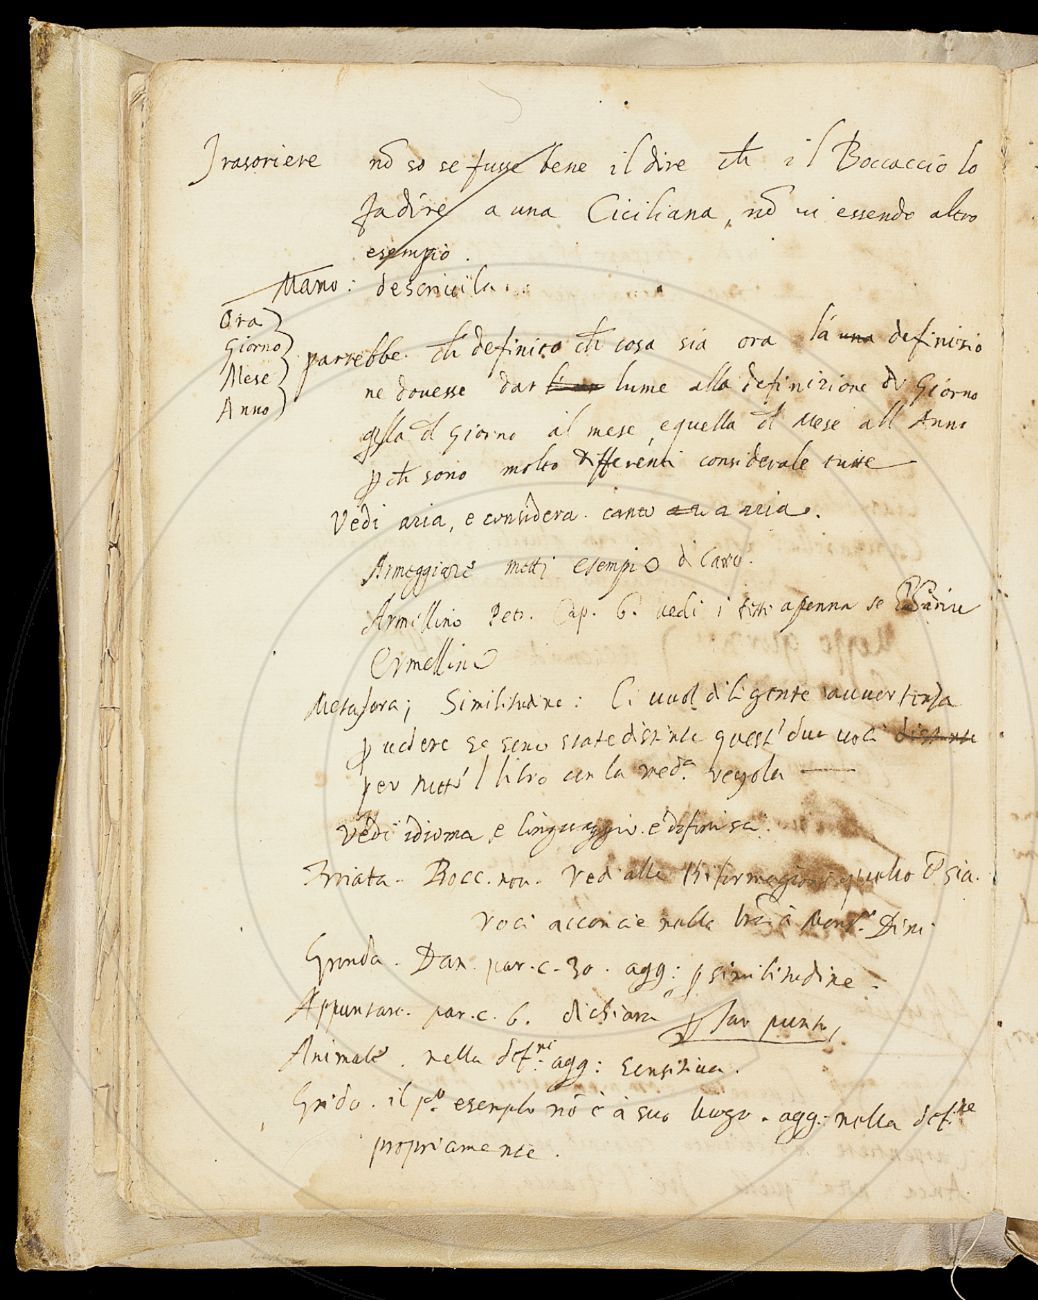 Trasoriere nō so se fusse bene il dire ch̄ il Boccaccio lo
fa dire a una Ciciliana, nō vi essendo altro
esempio.
Mano: descrivila..
Ora
Giorno
Mese
Anno
parrebbe. ch̄ definito ch̄ cosa sia ora la una definizio
ne dovesse dar lume alla definizione di Giorno
qlla dl Giorno al mese, e quella dl Mese all Anno
pch̄ sono molto differenti considerale tutte
Vedi aria, e considera. canto a aria.
Armeggiare metti esempio di
Armillino Petr. Cap. 6. vedi i testi a penna se
Ermellino
Metafora; Similitudine: Ci vuol diligente avvertenza
p vedere se sono state distinte quest' due voci distinte
per tutto 'l libro con la med.a regola
Vedi idioma, e linguaggio. e difinisci.
Bocc. nov. Vedi alle Riformagioni quello ch̄ sia.
Voci acconcie nella a Mons.r Dini.
Gronda. Dan. par. c. 30. agg: p similitudine.
Appuntare. par. c. 6. dichiara p far punto,
Animale. nella def.ne agg: sensitiva.
Grido. il p.o esemplo nō è a suo luogo. agg: nella def.ne
propriamente.